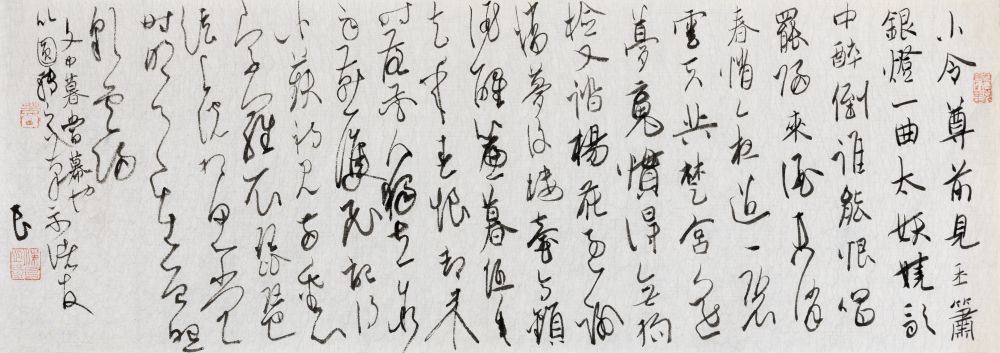 小令尊前見玉簫
銀燈一曲太妖嬈歌
中醉倒誰能恨唱
罷歸來酒未消
春悄〻夜迢〻碧
雲天共楚宮遙
夢魂慣得無拘
檢又踏楊花過謝
橋夢後樓臺高鎖
酒醒簾暮低垂
去年春恨却來
時落花人獨立微
雨燕雙飛記得
小蘋初見兩重心
字羅衣琵琶
弦上說相思當
時明月在曾照
彩雲歸
文中暮當幕也
以圓轉